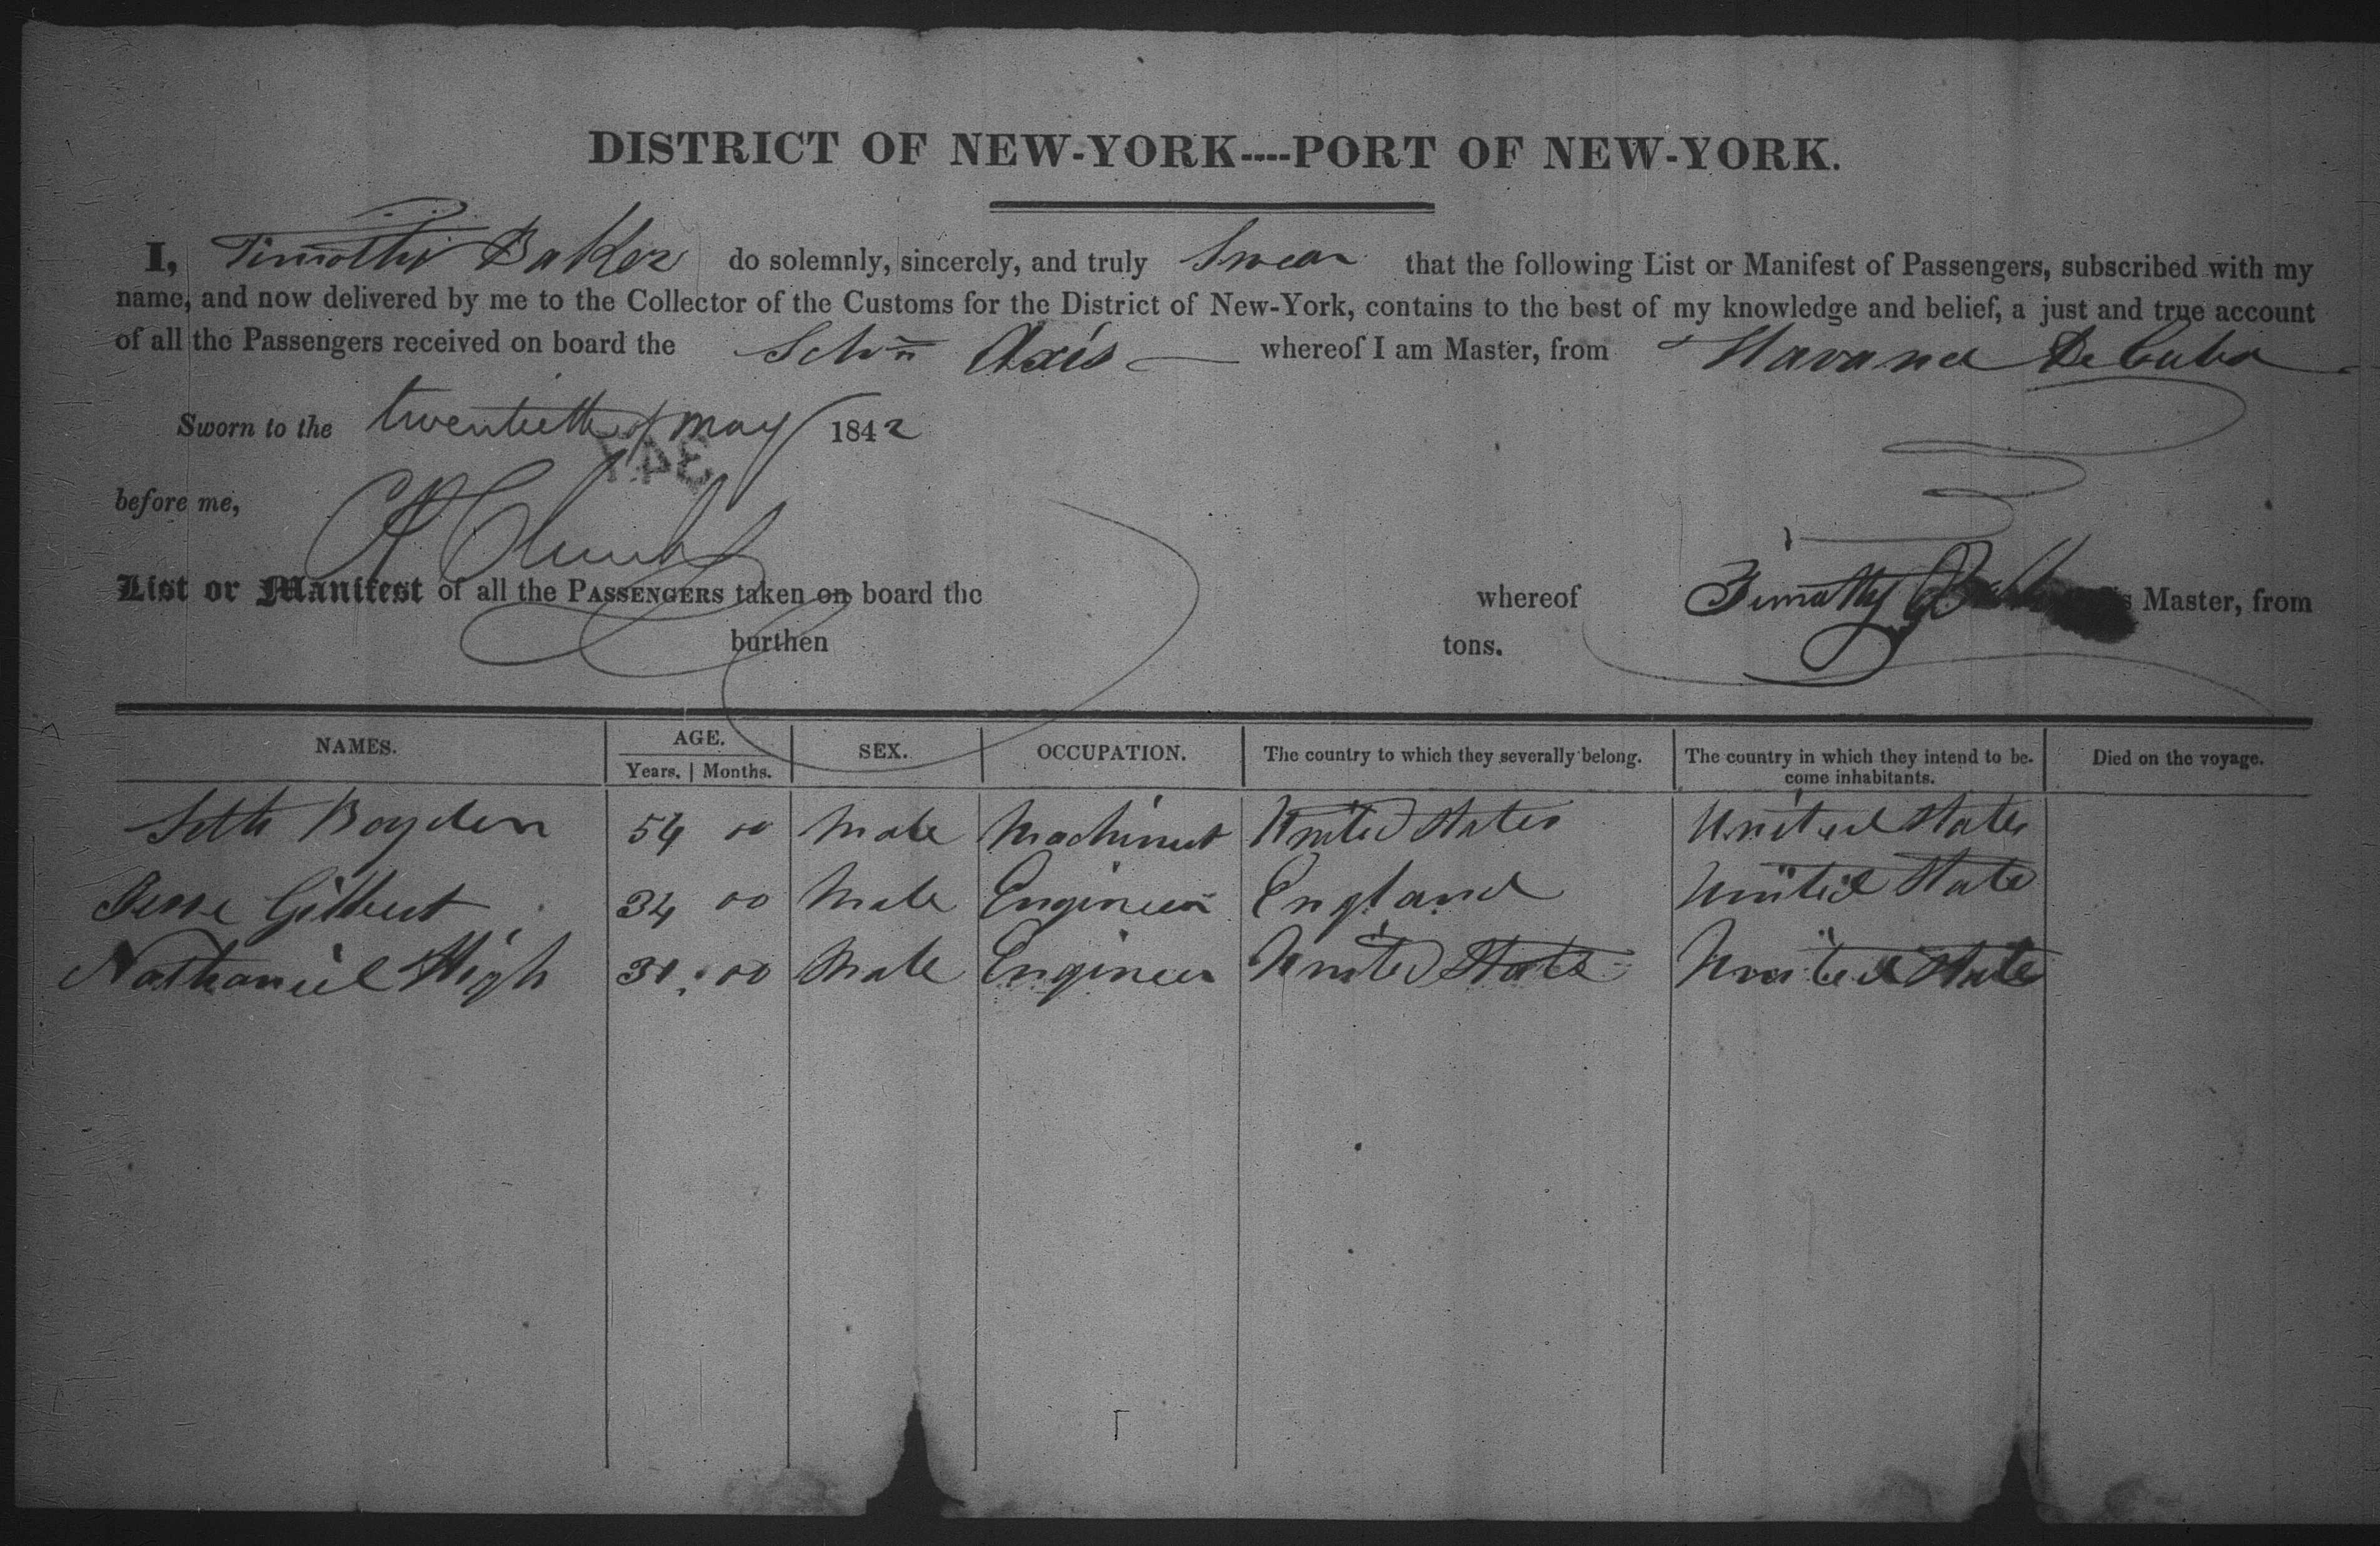 DISTRICT OF NEW-YORK----PORT OF NEW-YORK.
I, Timothy Baker do solemnly, sincerely, and truly Swear that the following List or Manifest of Passengers, subscribed with my
name, and now delivered by me to the Collector of the Customs for the District of New-York, contains to the best of my knowledge and belief, a just and true account
of all the Passengers received on board the Schn Axis whereof I am Master, from Havana De Cuba
Sworn to the twentieth of may 1842
before me,
List or Manifest of all the PASSENGERS taken on board the whereof Timothy is Master, from
burthen tons.
NAMES. AGE. SEX. OCCUPATION. The country to which they severally belong. The country in which they intend to be- Died on the voyage.
Years. | Months. come inhabitants.
Seth Boyden 54 00 Male Machinist United States United States
Jesse Gilbert 34 00 Male Engineer England United State
Nathaniel High 31 00 Male Engineer United State United State